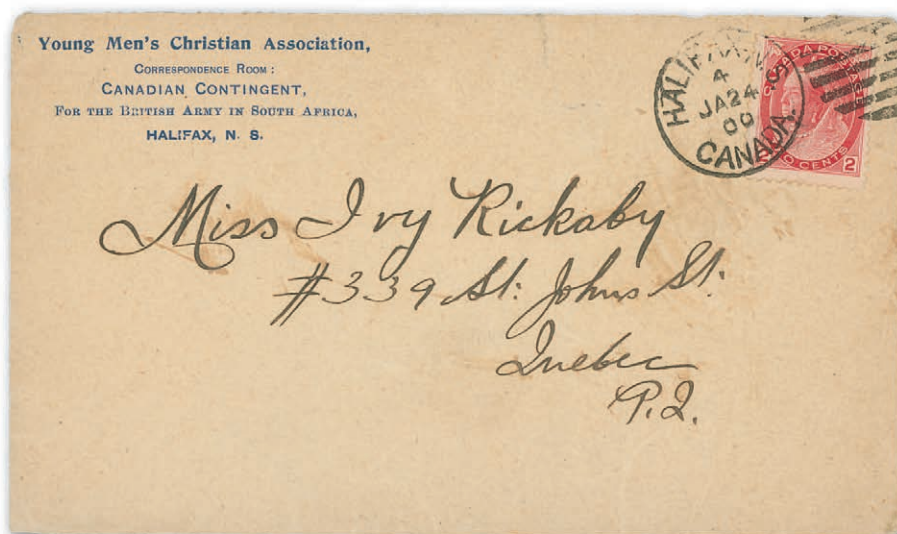 Young Men's Christian Association,
Correspondence Room:
Canadian Contingent,
For the British Army in South Africa,
HALIFAX, N. S.
HALIFAX
4
JA 24
00
CANADA.
CANADA POSTAGE
TWO CENTS
2
2
Miss Ivy Rickaby
#339 St: Johns St:
Quebec
P.Q.